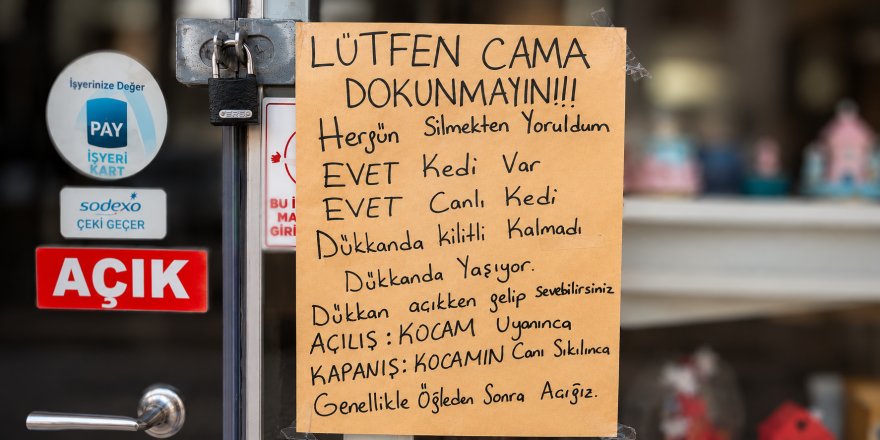 İşyerinize Değer
PAY
İŞYERİ
KART
sodexo
ÇEKİ GEÇER
AÇIK
BU İ
MA
GİRİ
LÜTFEN CAMA
DOKUNMAYIN!!!
Hergün Silmekten Yoruldum
EVET Kedi Var
EVET Canlı Kedi
Dükkanda kilitli Kalmadı
Dükkanda Yaşıyor.
Dükkan açıkken gelip Sevebilirsiniz
AÇILIŞ : KOCAM Uyanınca
KAPANIŞ: KOCAMIN Canı Sıkılınca
Genellikle Öğleden Sonra Açığız.